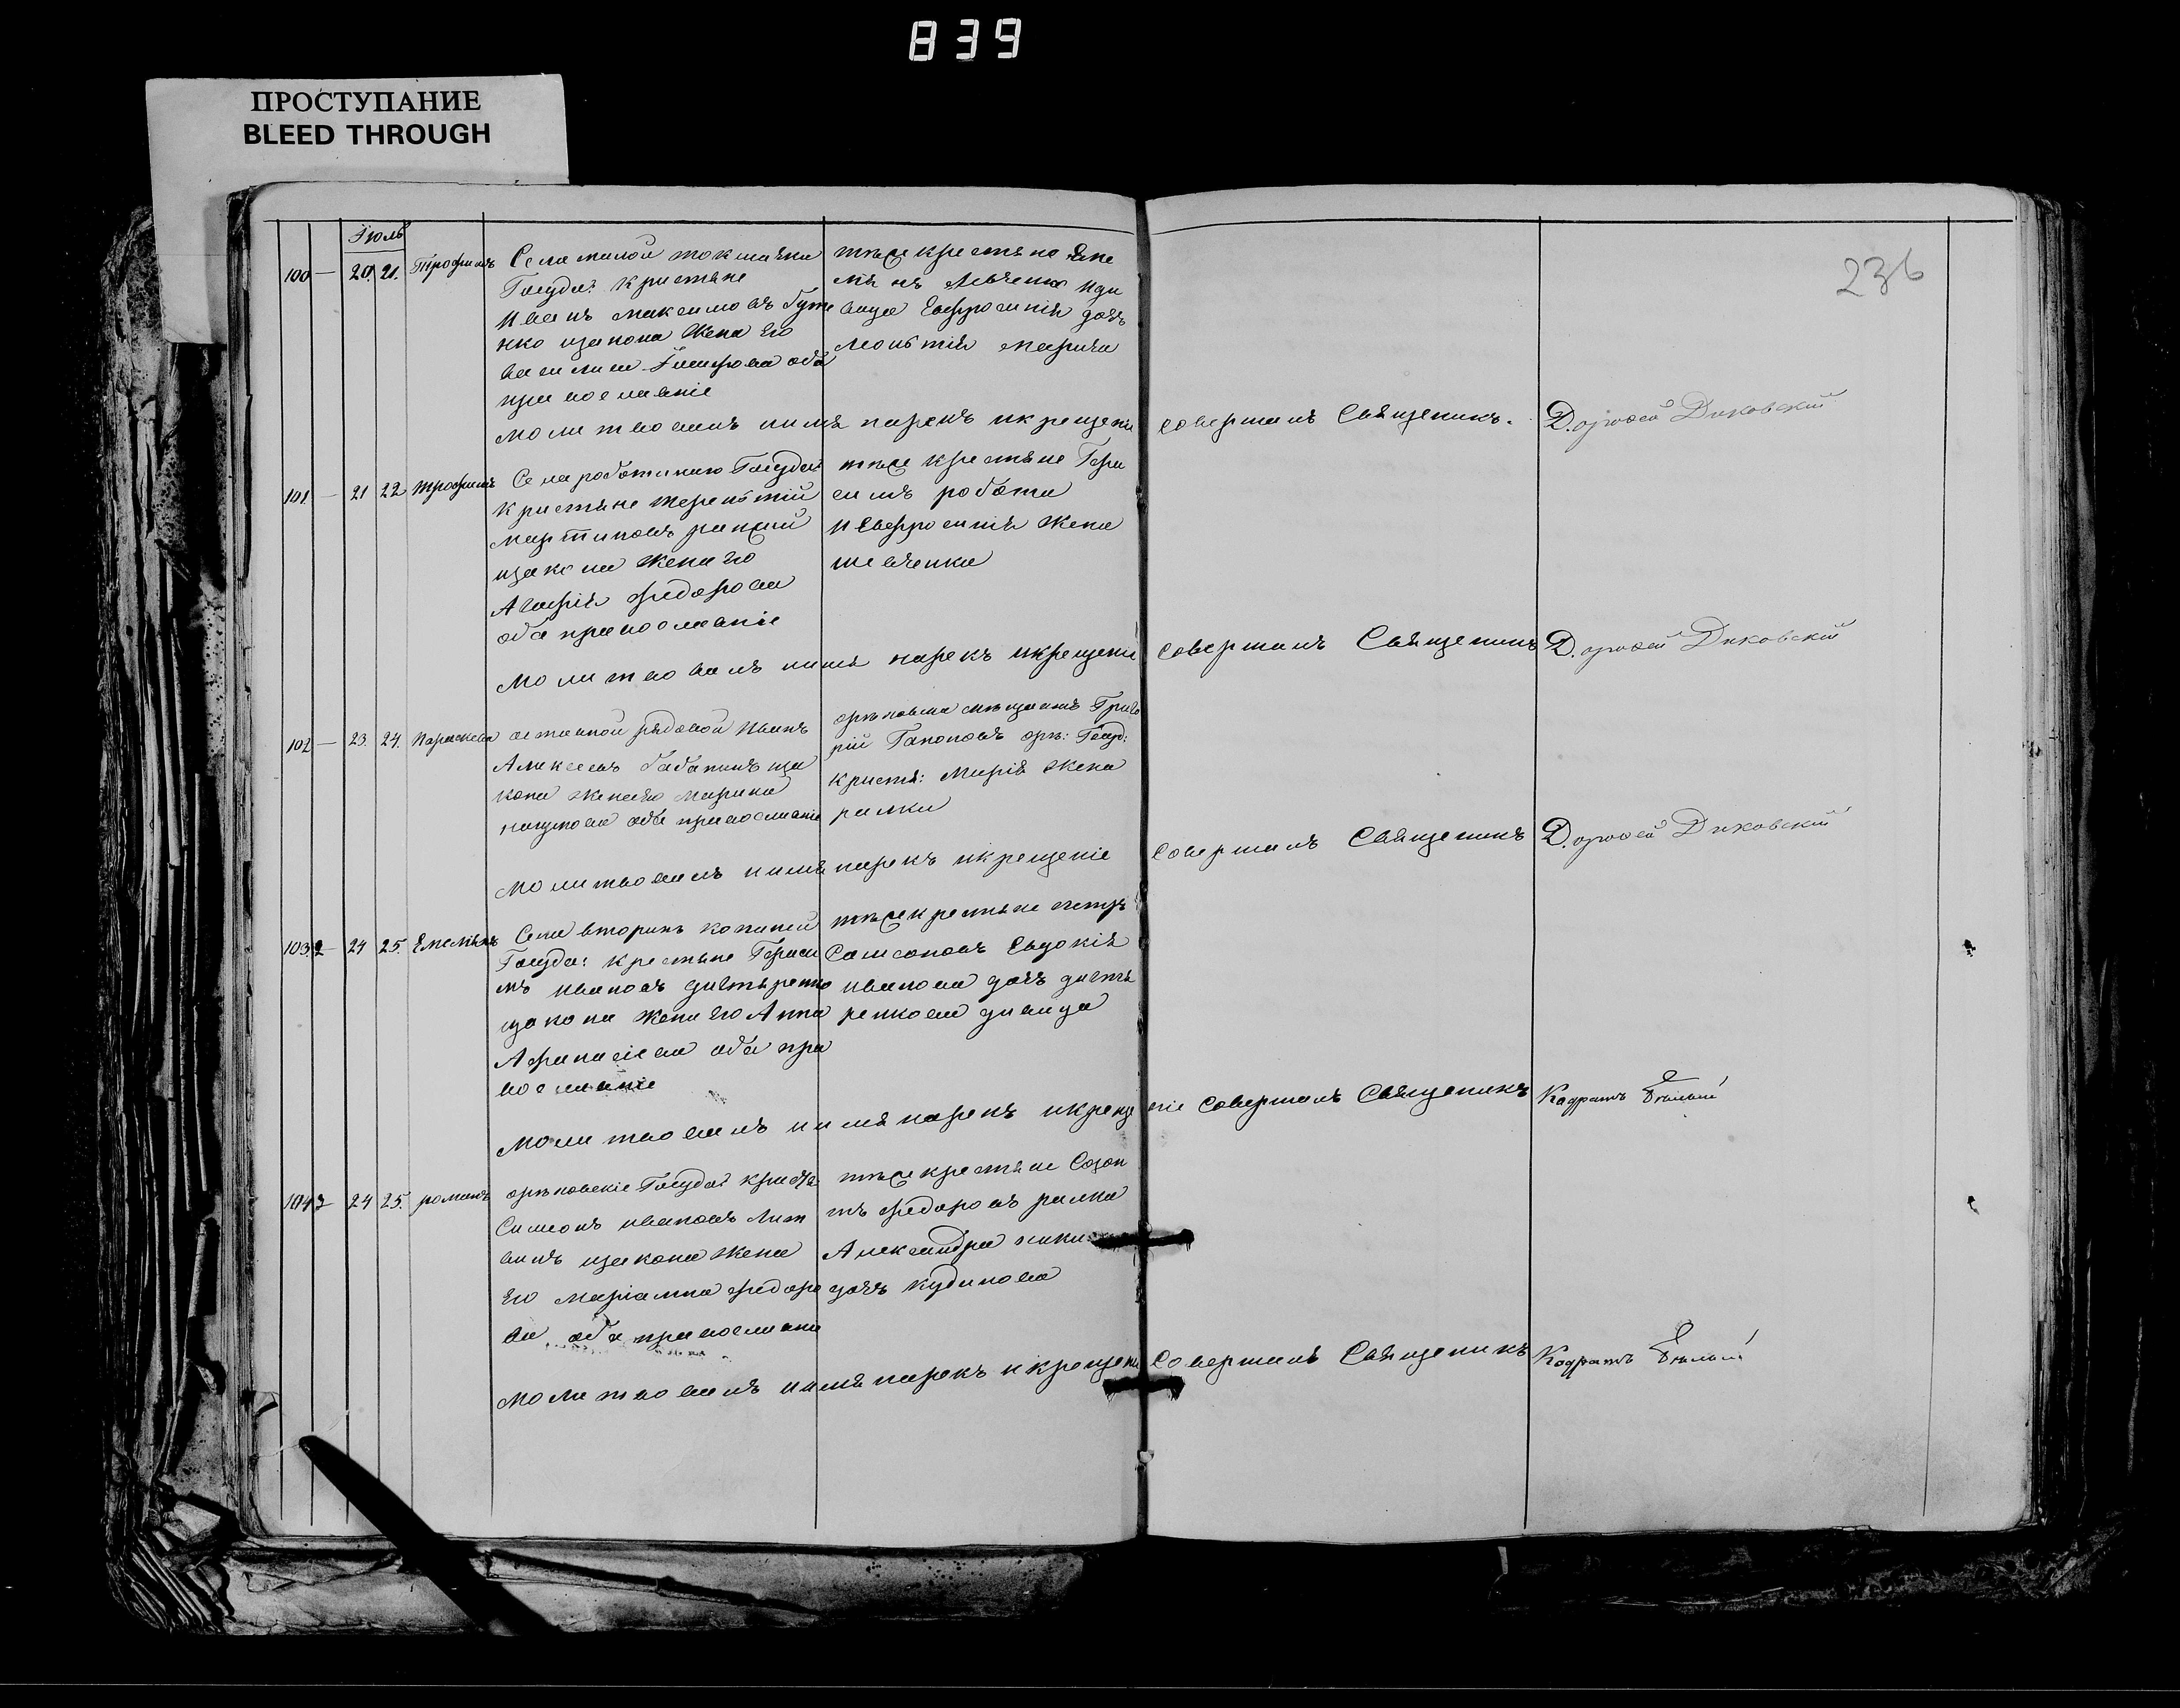 839
ПРОСТУПАНИЕ
BLEED THROUGH
236
Іюль
100 — 20. 21. Трофимъ
Села малой токмачки
Государ: кристяне
Иванъ максимовъ Буте
нко изакона жена его
василиса
оба
православніе
тѣхже крестяне Еме
лянъ Левченко иди
вица Евфросинія дочь
Леонтія
молитвовалъ иимя нарекъ икрещение совершилъ Священикъ. Дорофей Диковскій
101 — 21 22 трофимъ
Села роботиною Государ
кристяне терентій
мартиновъ
изакона жена его
Агафія федорова
оба православніе
тѣхже кристяне Гера
симъ робота
и Евфросинія жена
шевченка
молитвовалъ иимя нарекъ икрещение совершилъ Священикъ Дорофей Диковскій
102 — 23. 24. Параскева
отставной рядовой Иванъ
Алексеевъ бабанинъ иза
кона жена его Марина
наумова оба православніе
орѣховски мещанинъ Григо
рій Гапоновъ орѣ: Госуд:
кристя: Марія жена
ралки
молитвовалъ иимя нарекъ икрещеніе совершилъ Священикъ Дорофей Диковскій
103. 2 — 24 25. Емелянъ
Села вторихъ копаней
Государ: крестяне Гераси
мъ ивановъ дигтяренко
изакона жена его Анна
Афанасіева оба пра
вославніе
тѣхже крестяне петръ
Самсоновъ Евдокія
иванова дочь дигтя
ренкова дивица
молитвовалъ иимя нарекъ икрещение совершилъ Священикъ Кодратъ Бѣлый
104 2 — 24 25. романъ
орѣховскіе Государ кристя
Симеонъ ивановъ Лит
винъ изакона жена
его маріамна федоро
ва оба православни
тѣхже крестяне Созон
тъ федоровъ ралка
Александра
дочь кудинова
молитвовалъ иимя нарекъ икрещени совершилъ Священикъ Кодратъ Бѣлый